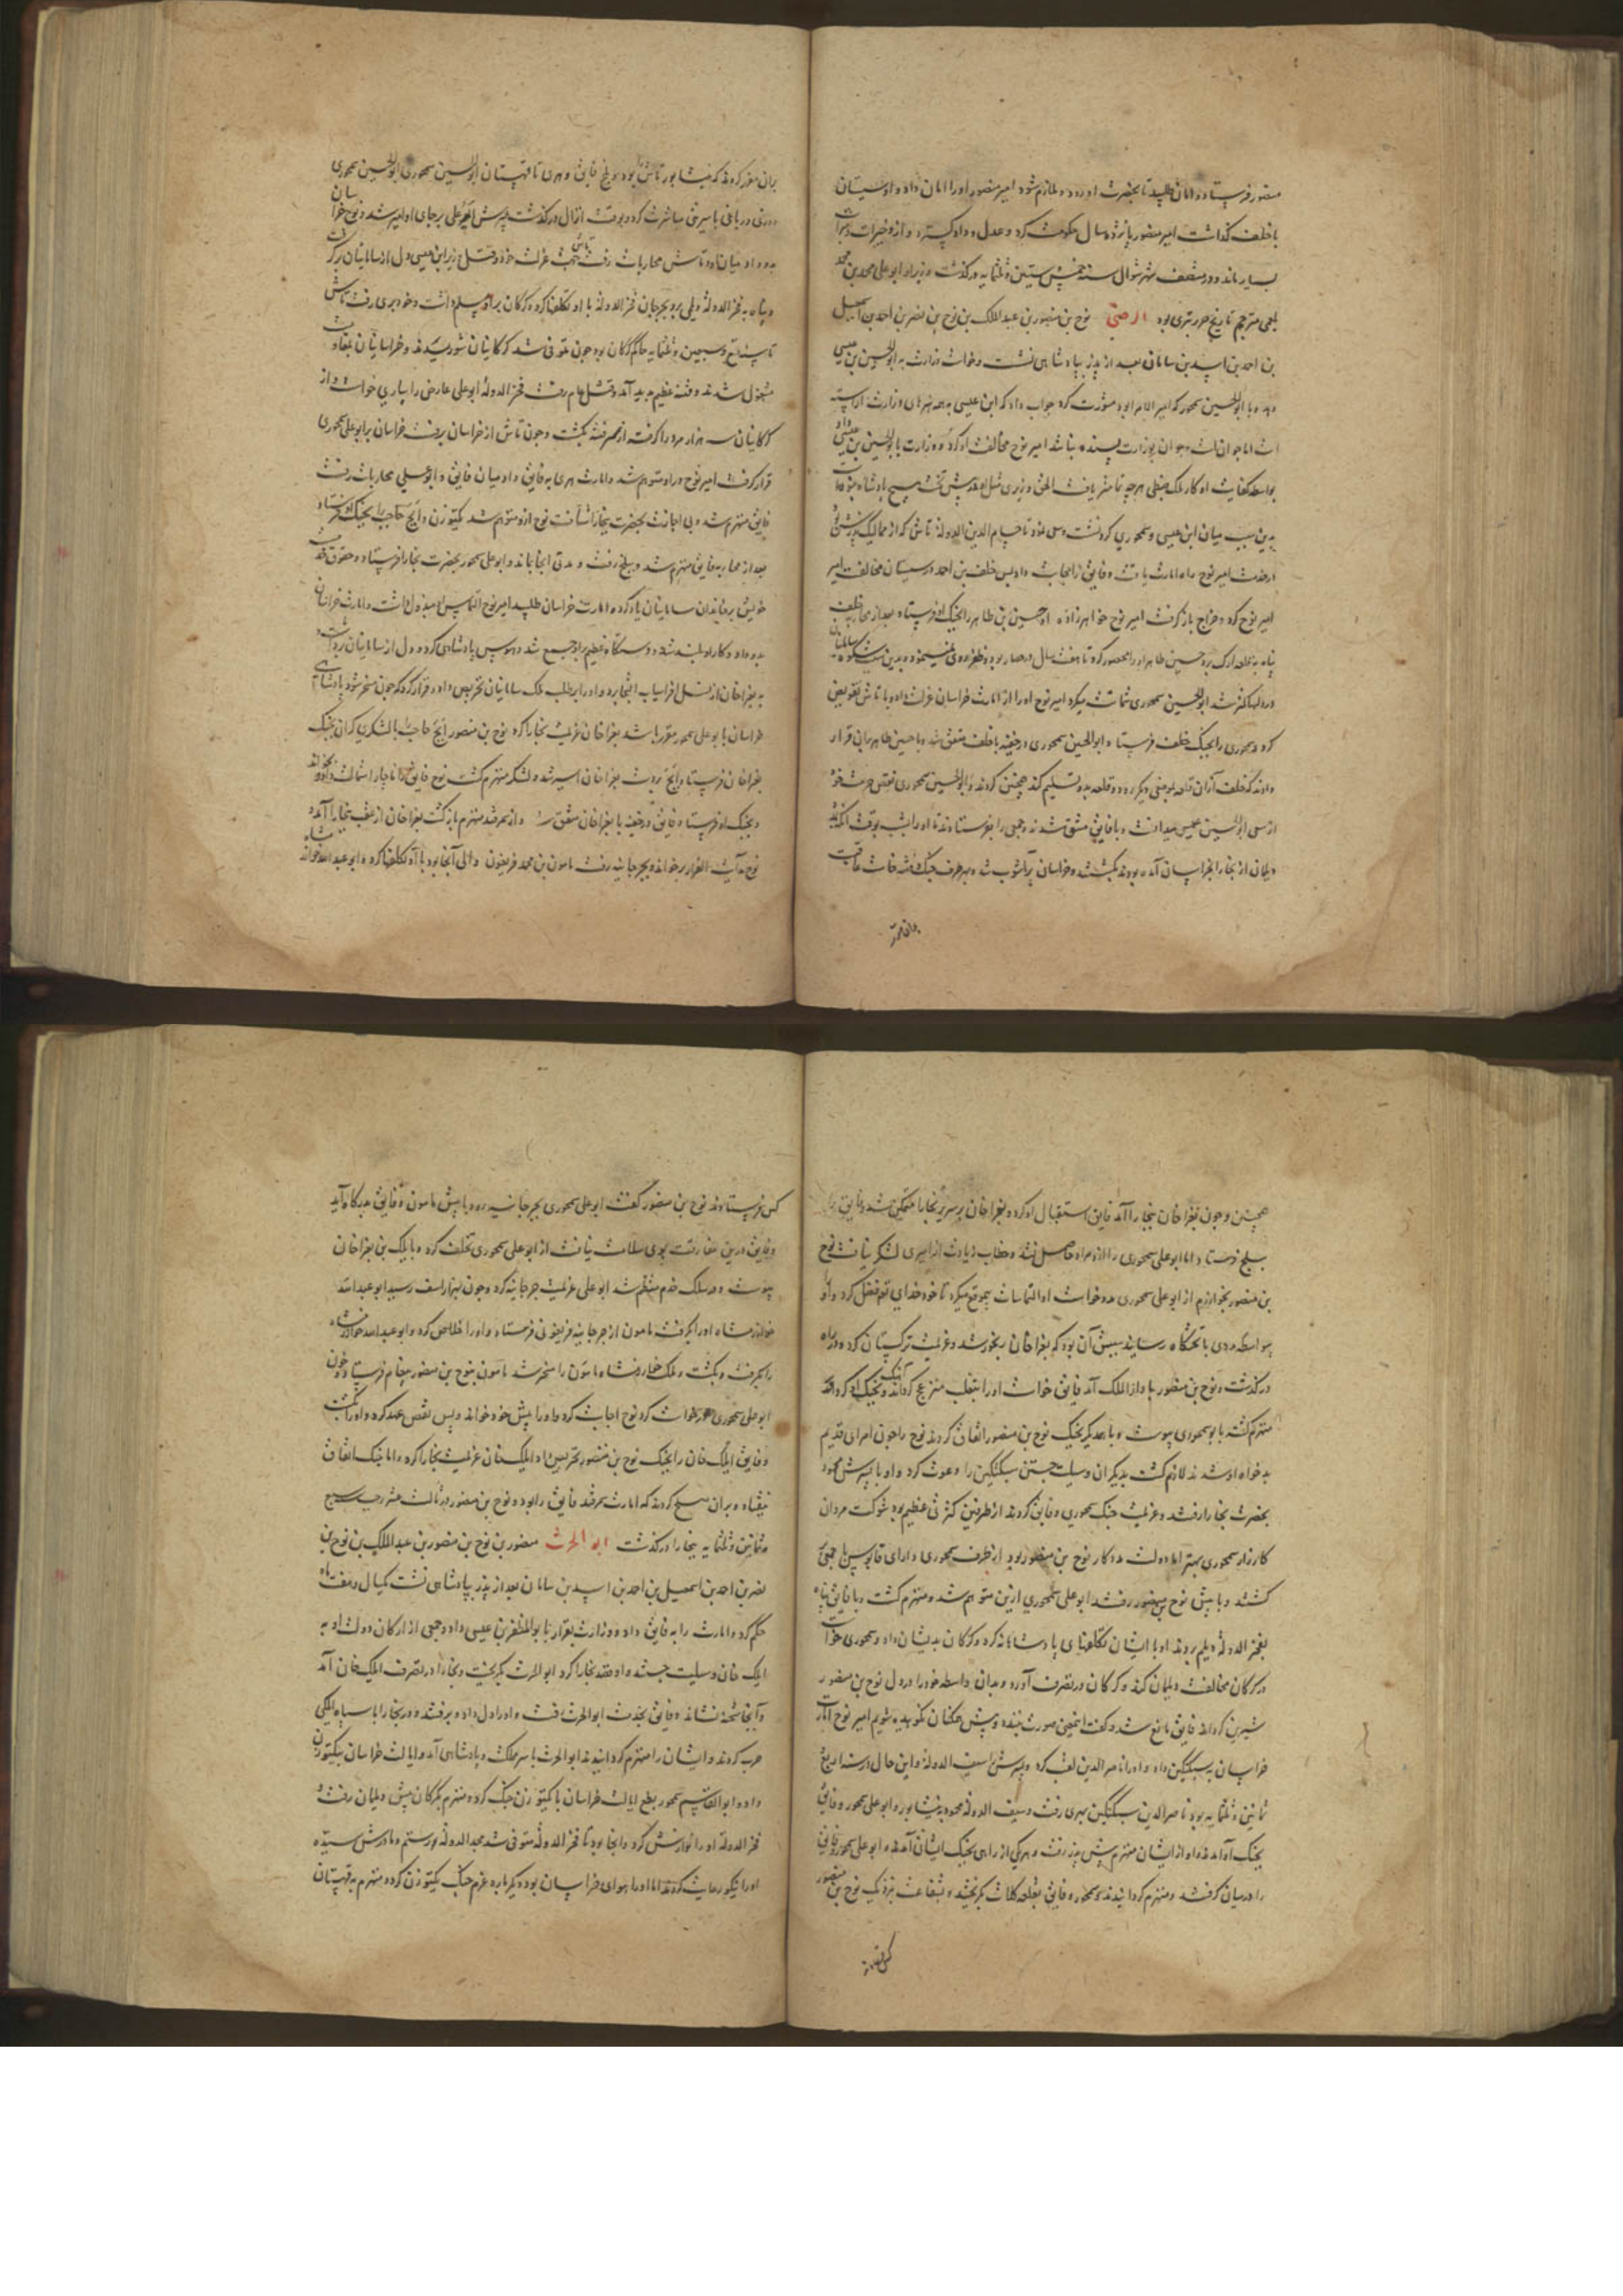 منصور فرستاد و امان طلبید تا بحضرت او رود و ملازم شود امیر منصور او را امان داد و او سیستان
با خلف گذاشت امیر منصور پانزده سال حکومت کرد و عدل و داد گسترد و از و خیرات و مبرات
بسیار ماند و در منتصف شهر شوال سنه خمس ستین و ثلثمایه درگذشت وزیر او ابو علی محمد بن محمد
بلعمی مترجم تاریخ جریر بود الرضی نوح بن منصور بن عبد الملک بن نوح بن نصر بن احمد بن اسمعیل
بن احمد بن اسد بن سامان بعد از پدر بپادشاهی نشست و خواست وزارت به ابو الحسین بن عیسی
دهد و با ابو الحسین سمجور که امیر الامرا بود مشورت کرد جواب داد که ابن عیسی بهمه هنرهای وزارت اراسته
است اما جوان است و جوان بوزارت پسندیده نباشد امیر نوح مخالفت او کرد و وزارت بابو الحسین بن عیسی داد
بواسطه کفایت او کار ملک ضبطی هرچه تمامتر یافت الحق وزیری مثل او پیش تخت هیچ پادشاه نبوده است
بدین سبب میان ابن عیسی و سمجوری کرد نشست و سعی نمود تا حسام الدین الدوله تاش که از ممالیک پدرش بود
از خدمت امیر نوح راه امارت یافت و فایق را حجابت داد پس خلف بن احمد در سیستان مخالفت امیر
امیر نوح کرد و خراج بازگرفت امیر نوح خواهرزاده او حسین بن طاهر را بجنگ او فرستاد بعد از محاربه خلف
پناه به قلعه ارک برد حسین طاهر او را محصور کرد تا هفت سال در حصار بود و ظفر روی نمینمود و بدین سبب شکوه سامانیان
در دلها کمتر شد ابو الحسین سمجوری شماتت میکرد امیر نوح او را از امارت خراسان عزلت داد و با تاش تفویض
کرد و سمجوری را بجنگ خلف فرستاد ابو الحسین سمجوری در خفیه با خلف متفق شد و با حسین طاهر بران قرار
دادند که خلف از آن قلعه بموضعی دیگر رود و قلعه بدو تسلیم کند همچنین کردند و ابو الحسین سمجوری نقض حرمت خود
از سعی ابو الحسین عیسی میدانست و با فایق متفق شدند و جمعی را بفرستادند تا او را بشب بوقت آنکه
دیلمان از بخارا بخراسان آمده بودند بکشتند و خراسان پرآشوب شد و بهر طرف جنگ و فتنه خاست عاقبت
بران مقرر
بران مقرر کردند که نیشابور تاش را بود و بلخ فایق و هری تا قهستان ابو الحسین سمجوری ابو الحسین سمجوری
روزی در باغی با سریتی مباشرت کرد و بوقت انزال درگذشت پسرش ابو علی بر جای او امیر شد و نوح خراسان
بدو داد میان او و تاش محاربات رفت تاش بسبب عزلت خود و قتل وزیر ابن عیسی دل از سامانیان برگرفت
و پناه به فخر الدوله دیلمی برد بجرجان فخر الدوله با او تکلفها کرد و گرگان برو مسلم داشت و خود بری رفت تاش
تا سنه تسع و سبعین و ثلثمایه حاکم گرگان بود چون متوفی شد گرگانیان بشوریدند و خراسانیان بمقاومت
مشغول شدند و فتنه عظیم پدید آمد و قتل عام رفت فخر الدوله ابو علی عارض را بیاری خواست و از
گرگانیان سه هزار مرد را گرفته از بهر فتنه بکشت و چون تاش از خراسان برفت خراسان بر ابو علی سمجوری
قرار گرفت امیر نوح در او متوهم شد و امارت هری به فایق داد میان فایق و ابو علی محاربات رفت
فایق منهزم شد و بی اجازت بحضرت بخارا شتافت نوح ازو متوهم شد بکتوزن و اینج حاجب را بجنگ او فرستاد
بعد از محاربه فایق منهزم شد و ببلخ رفت و مدتی آنجا بماند و ابو علی سمجور بحضرت بخارا فرستاد و حقوق خدمت
خویش بر خاندان سامانیان یاد کرد و امارت خراسان طلبید امیر نوح التماس او مبذول داشت و امارت خراسان
بدو داد و کار او بلند شد و دستگاه عظیم بر او جمع شد و هوس پادشاهی کرد و دل از سامانیان برداشت و
به بغراخان از نسل افراسیاب التجا برد و او را بر طلب ملک سامانیان تحریض داد و قرار کرد که چون مسخر شود پادشاهی
خراسان با بو علی سمجور مقرر باشد بغراخان عزیمت بخارا کرد نوح بن منصور اینج حاجب را با لشکری گران بجنگ
بغراخان فرستاد و اینج بر دست بغراخان اسیر شد و لشکر منهزم گشت نوح فایق را ناچار استمالت داد و بخواند
و بجنگ او فرستاد فایق در خفیه با بغراخان متفق شد و از سمرقند منهزم بازگشت بغراخان از عقب ببخارا آمد و
نوح آیت الفرار برخواند و بجرجانیه رفت مامون بن محمد فریغون والی آنجا بود با او تکلفها کرد و ابو عبد الله خوارزمشاه
همچنین و چون بغراخان ببخارا آمد فایق استقبال او کرد و بغراخان بر سریر بخارا متمکن شد و فایق را
ببلخ فرستاد اما ابو علی سمجوری را از و مراد حاصل نشد و خطاب زیادت از امیری لشکر نیافت نوح
بن منصور بخوارزم از ابو علی سمجوری مدد خواست او التماسات بیموقع میکرد تا خود خدای تعالی فضل کرد و او را
بیواسطه مددی با تختگاه رسانید سببش آن بود که بغراخان رنجور شد و عزیمت ترکستان کرد و در راه
درگذشت و نوح بن منصور با دار الملک آمد فایق خواست او را بتغلب منزعج گرداند آهنگ جنگ او کرد و از و
منهزم گشته با بو سمجوری پیوست و با همدیگر بجنگ نوح بن منصور اتفاق کردند نوح را چون امرای قدیم
بدخواه او شدند لازم گشت بدیگران وسیلت جستن سبکتکین را دعوت کرد و او با پسرش محمود
بحضرت بخارا رفتند و عزیمت جنگ سمجوری و فایق کردند از طرفین کثرتی عظیم بود شوکت مردان
کارزار سمجوری بهتر اما دولت مددکار نوح بن منصور بود از طرف سمجوری دارای قابوس با جمعی
گشتند و با پیش نوح بن منصور رفتند ابو علی سمجوری ازین متوهم شد و منهزم گشت و با فایق پناه
بفخر الدوله دیلم بردند او با ایشان تکلفهای پادشاهانه کرد و گرگان بدیشان داد و سمجوری خواست
در گرگان مخالفت دیلمان کند و گرگان در تصرف آورد و بدان واسطه خود را در دل نوح بن منصور
شیرین گرداند فایق مانع شد و گفت این معنی صورت نبندد و پیش همگنان نکوهیده شویم امیر نوح امارت
خراسان به سبکتکین داد و او را ناصر الدین لقب کرد و پسرش را سیف الدوله و این حال در سنه اربع
ثمانین و ثلثمایه بود ناصر الدین سبکتکین بهری رفت و سیف الدوله محمود به نیشابور و ابو علی سمجور و فایق
بجنگ آمدند و او از ایشان منهزم پیش پدر رفت و هر یکی از راهی بجنگ ایشان آمدند و ابو علی سمجور و فایق
را در میان گرفتند و منهزم گردانیدند و سمجور و فایق بقلعه کلات گریختند و بشفاعت نزدیک نوح بن منصور
کس فرستادند
کس فرستادند نوح بن منصور گفت ابو علی سمجوری بجرجانیه رود با پیش مامون و فایق بدرگاه آید
و فایق درین مفارقت بوی سلامت نیافت از ابو علی سمجوری تخلف کرد و با ایلک بن بغراخان
پیوست و در سلک خدم منتظم شد ابو علی عزیمت جرجانیه کرد و چون بهزاراسف رسید ابو عبد الله
خوارزمشاه او را بگرفت مامون از جرجانیه فریغونی فرستاد و او را خلاص کرد و ابو عبد الله خوارزمشاه
را بگرفت و بکشت و ملک خوارزمشاه مامون را مسخر شد مامون بنوح بن منصور پیغام فرستاد و خون
ابو علی سمجوری درخواست کرد نوح اجابت کرد و او را پیش خود خواند و پس نقض عهد کرد و او را بکشت
و فایق ایلک خان را بجنگ نوح بن منصور تحریض داد ایلک خان عزیمت بخارا کرد و اما جنگ اتفاق
نیفتاد و بران صلح کردند که امارت سمرقند فایق را بود و نوح بن منصور در ثالث عشر رجب سبع
و ثمانین و ثلثمایه ببخارا درگذشت ابو الحرث منصور بن نوح بن منصور بن عبد الملک بن نوح بن
نصر بن احمد بن اسمعیل بن احمد بن اسد بن سامان بعد از پدر بپادشاهی نشست یکسال و هفت ماه
حکم کرد و امارت را به فایق داد و وزارت بقرار بابو المظفر بن عیسی داد و جمعی از ارکان دولت او به
ایلک خان وسیلت جستند و او قصد بخارا کرد ابو الحرث بگریخت و بخارا در تصرف ایلک خان آمد
و آنجا شحنه نشاند و فایق بخدمت ابو الحرث رفت و او را دل داد و برفتند و در بخارا با سپاه ایلکی
حرب کردند و ایشان را منهزم گردانیدند ابو الحرث با سر مملکت و پادشاهی آمد و ایالت خراسان ببکتوزن
داد و ابو القاسم سمجور بطمع ایالت خراسان با بکتوزن جنگ کرد و منهزم بگرگان پیش دیلمان رفت
فخر الدوله او را نوازش کرد و آنجا بود تا فخر الدوله متوفی شد مجد الدوله رستم و مادرش سیده
او را نیکو رعایت کردند اما او را هوای خراسان بود دیگر باره عزم جنگ بکتوزن کرد و منهزم به قهستان